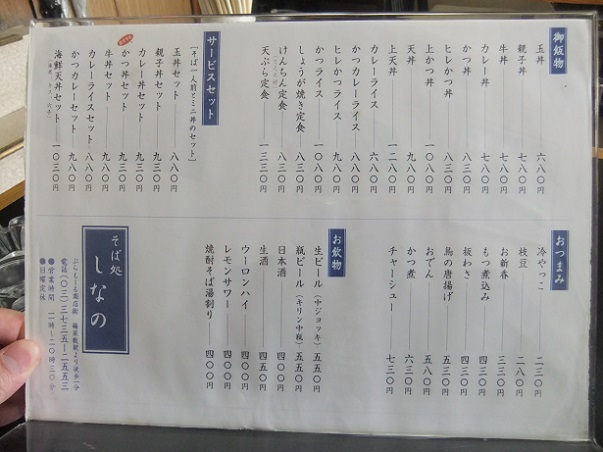 御飯物
玉丼 六八〇円
親子丼 七八〇円
牛丼 七八〇円
カレー丼 七八〇円
かつ丼 八三〇円
ヒレかつ丼 八三〇円
上かつ丼 一〇八〇円
天丼 九八〇円
上天丼 一二八〇円
カレーライス 六八〇円
かつカレーライス 九八〇円
ヒレかつライス 九八〇円
かつライス 一〇八〇円
しょうが焼き定食 八三〇円
けんちん定食 八三〇円
天ぷら定食 一三三〇円
サービスセット
[そば一人前とミニ丼のセット]
玉丼セット 八八〇円
親子丼セット 九三〇円
カレー丼セット 九三〇円
かつ丼セット 九三〇円
牛丼セット 九八〇円
カレーライスセット 八八〇円
かつカレーセット 九八〇円
海鮮天丼セット 一〇三〇円
おつまみ
冷やっこ 二三〇円
枝豆 二八〇円
お新香 三三〇円
もつ煮込み 四三〇円
板わさ 四三〇円
鳥の唐揚げ 四三〇円
おでん 五八〇円
かつ煮 六三〇円
チャーシュー 七三〇円
お飲物
生ビール(中ジョッキ) 五五〇円
瓶ビール(キリン中瓶) 五五〇円
日本酒 四〇〇円
生酒 四五〇円
ウーロンハイ 四〇〇円
レモンサワー 四〇〇円
焼酎そば湯割り 四〇〇円
そば処
しなの
電話(〇三)三七三五-二五五三
●営業時間 一一時~二〇時三〇分
●日曜定休